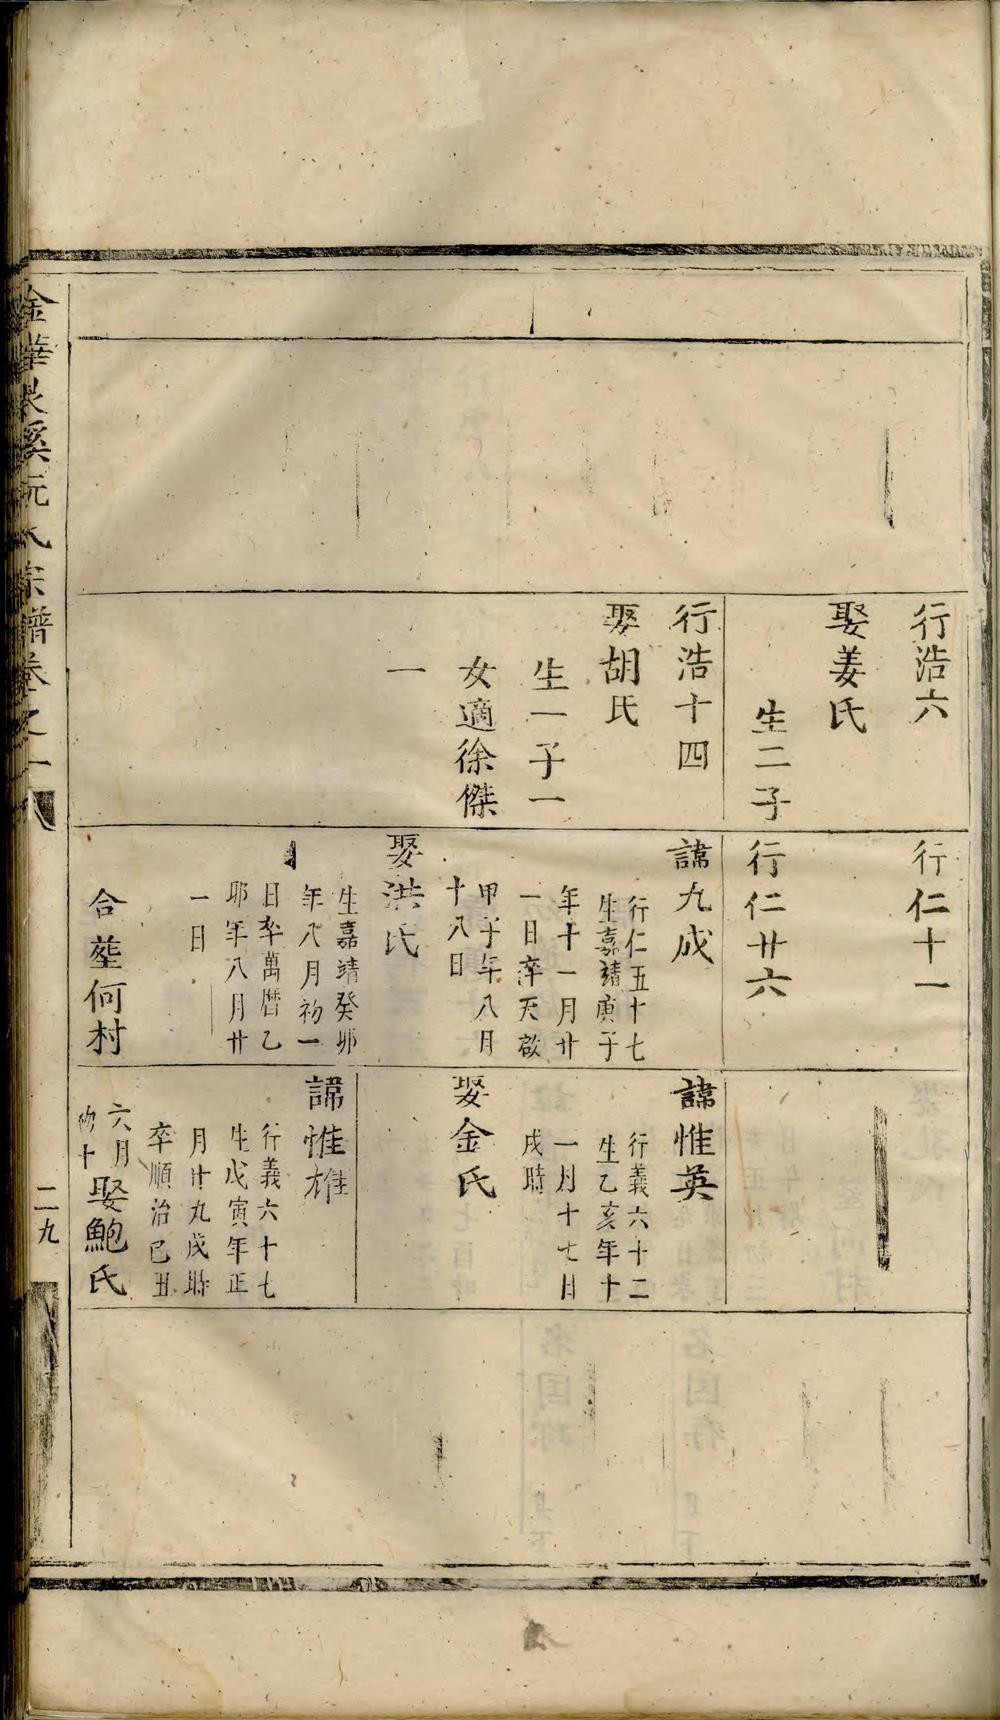 行浩六
娶姜氏
生二子
行浩十四
娶胡氏
生一子一
女適徐傑
一
行仁十一
行仁廿六
諱九成
行仁五十七
生嘉靖庚子
年十一月廿
一日卒天啟
甲子年八月
十八日
娶洪氏
生嘉靖癸卯
年八月初一
日卒萬曆乙
卯年八月廿
一日
合塟何村
諱惟英
行義六十二
生乙亥年十
一月十七日
戌時
娶金氏
諱惟雄
行義六十七
生戊寅年正
月廿九戌時
卒順治己丑
六月
初十
娶鮑氏
金華 溪阮氏宗譜卷之一
二九